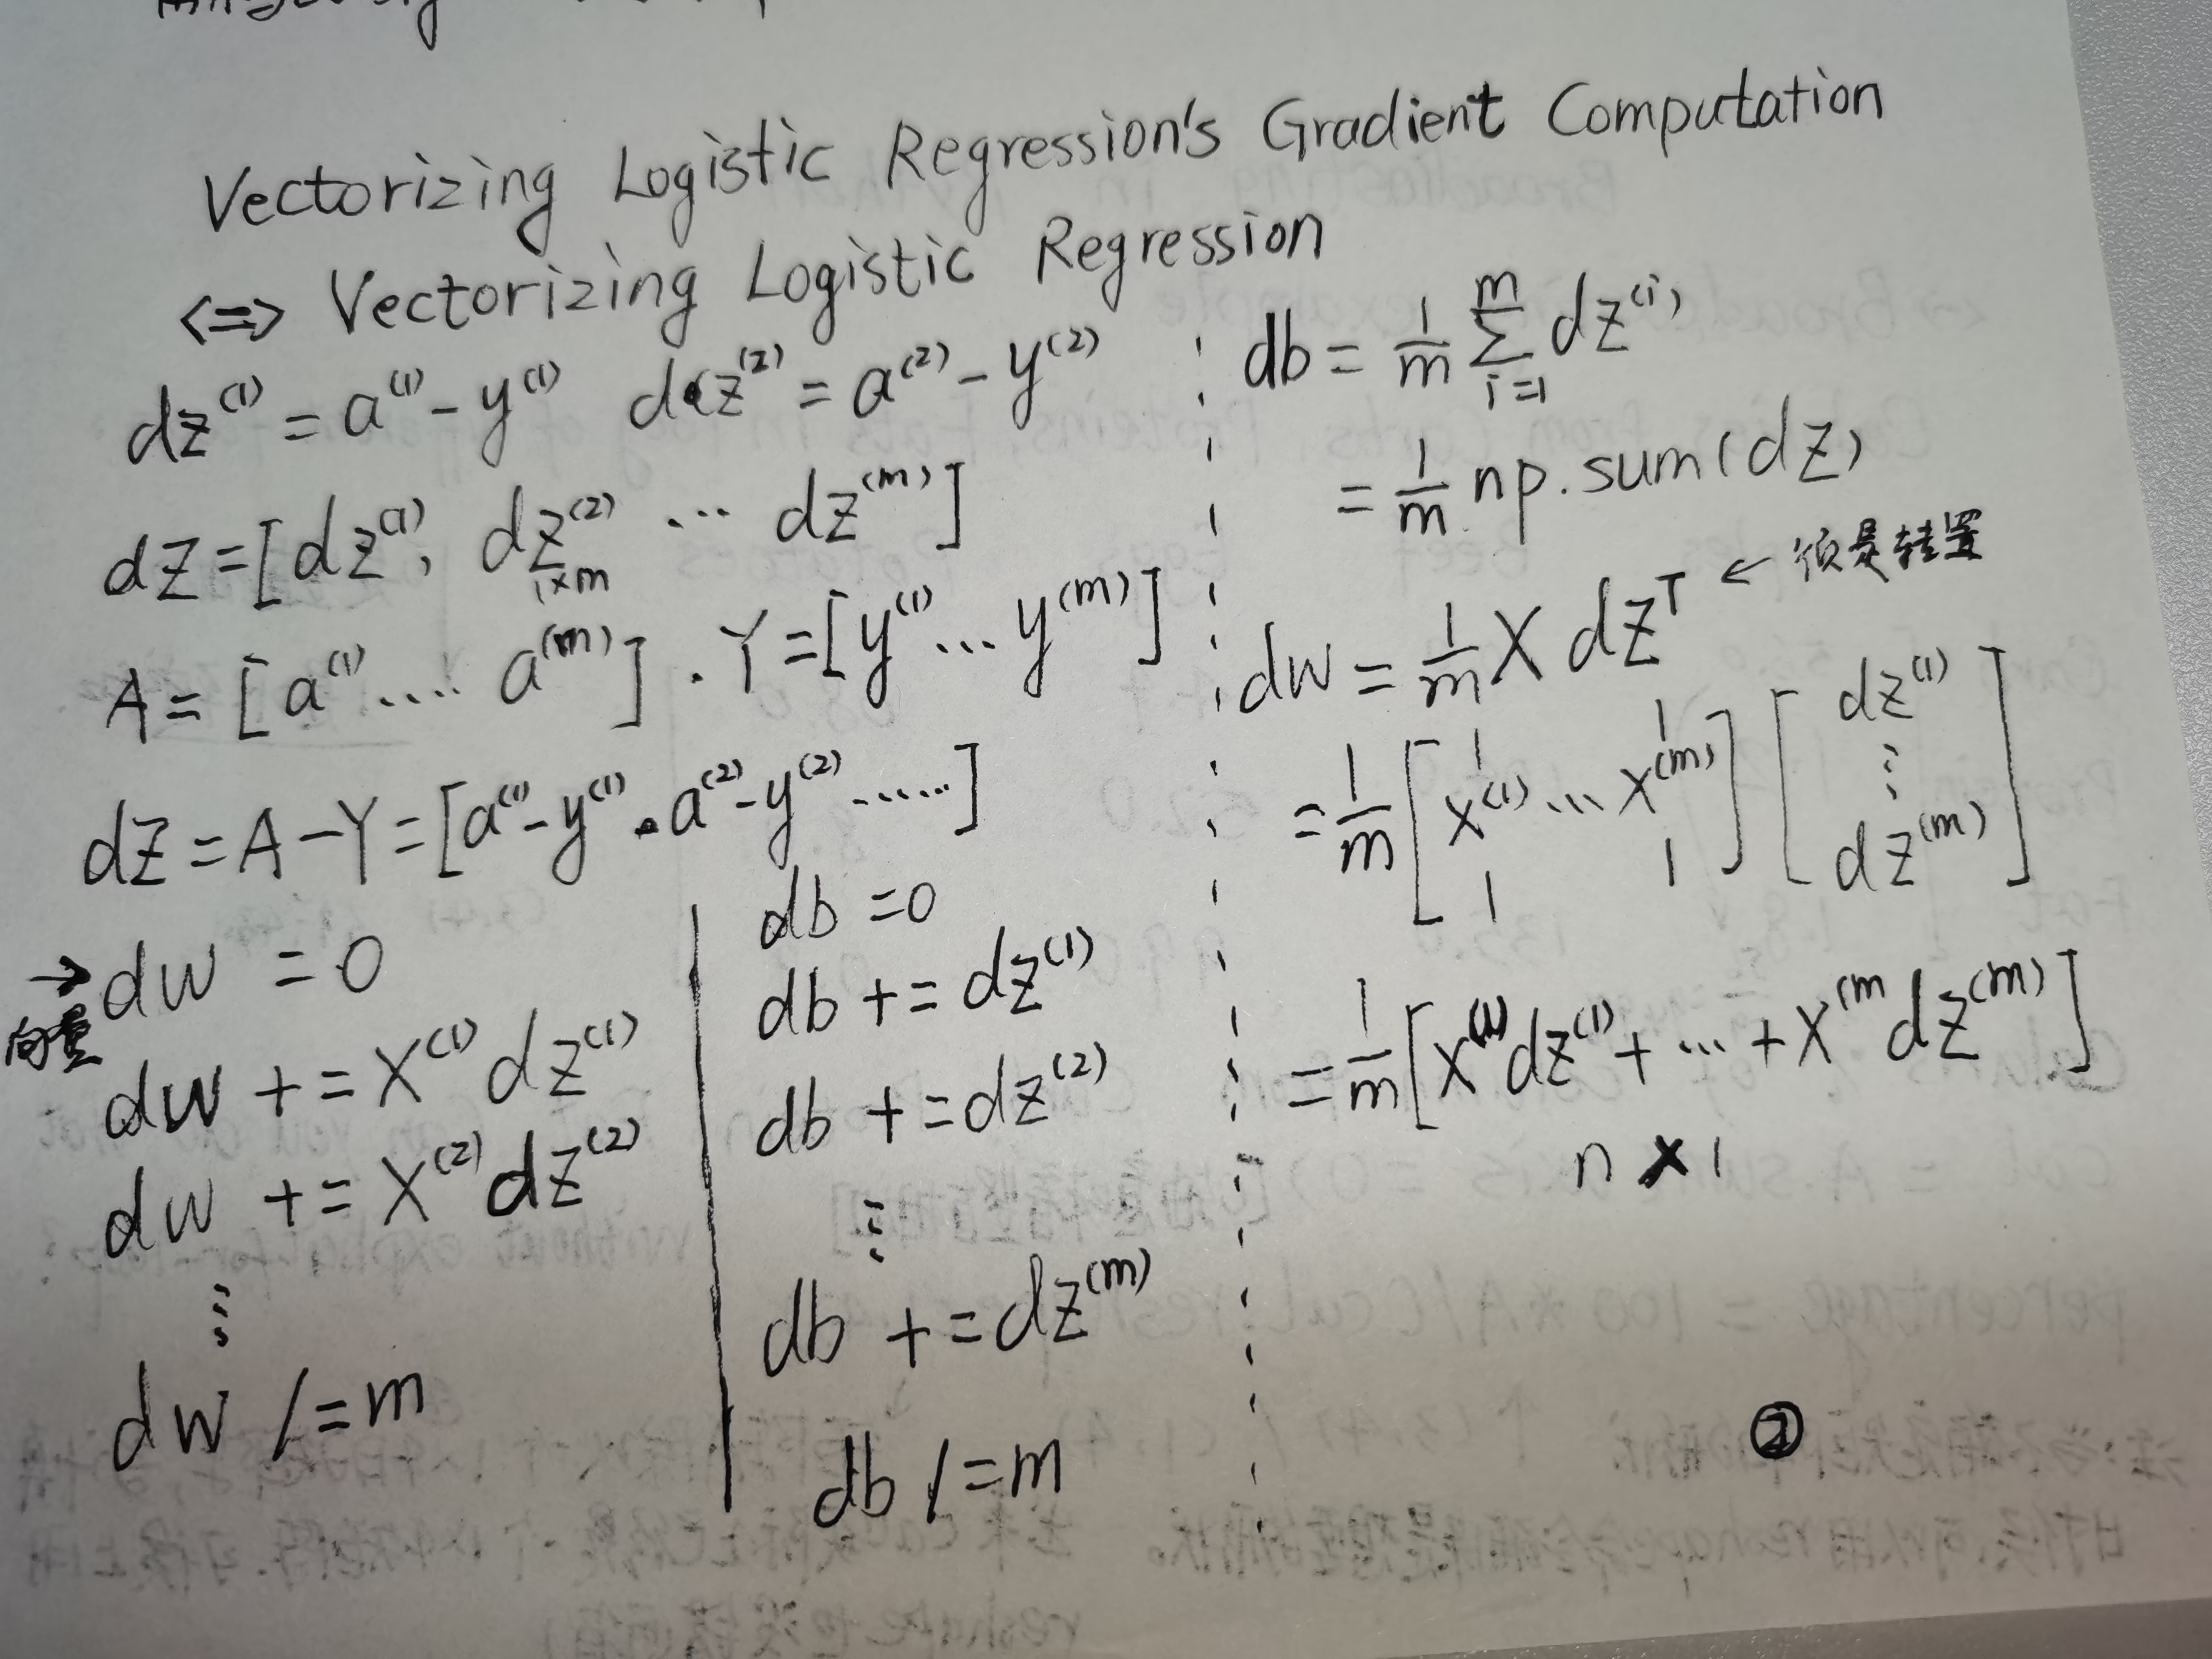 Vectorizing Logistic Regression's Gradient Computation
<=> Vectorizing Logistic Regression
dz⁽¹⁾ = a⁽¹⁾ - y⁽¹⁾ dz⁽²⁾ = a⁽²⁾ - y⁽²⁾
dZ = [dz⁽¹⁾, dz⁽²⁾ ... dz⁽ᵐ⁾]
1×m
A = [a⁽¹⁾ .... a⁽ᵐ⁾] . Y = [y⁽¹⁾ ... y⁽ᵐ⁾]
dZ = A - Y = [a⁽¹⁾ - y⁽¹⁾ . a⁽²⁾ - y⁽²⁾ ......]
→ dw = 0
向量
dw += X⁽¹⁾ dz⁽¹⁾
dw += X⁽²⁾ dz⁽²⁾
⋮
dw /= m
db = 0
db += dz⁽¹⁾
db += dz⁽²⁾
⋮
db += dz⁽ᵐ⁾
db /= m
db = 1/m ∑ᵢ₌₁ᵐ dz⁽ⁱ⁾
= 1/m np.sum(dZ)
dw = 1/m X dZᵀ ← 须是转置
= 1/m [x⁽¹⁾ ... x⁽ᵐ⁾] [dz⁽¹⁾ ⋮ dz⁽ᵐ⁾]
= 1/m [x⁽¹⁾dz⁽¹⁾ + ... + x⁽ᵐ dz⁽ᵐ⁾]
n × 1
②